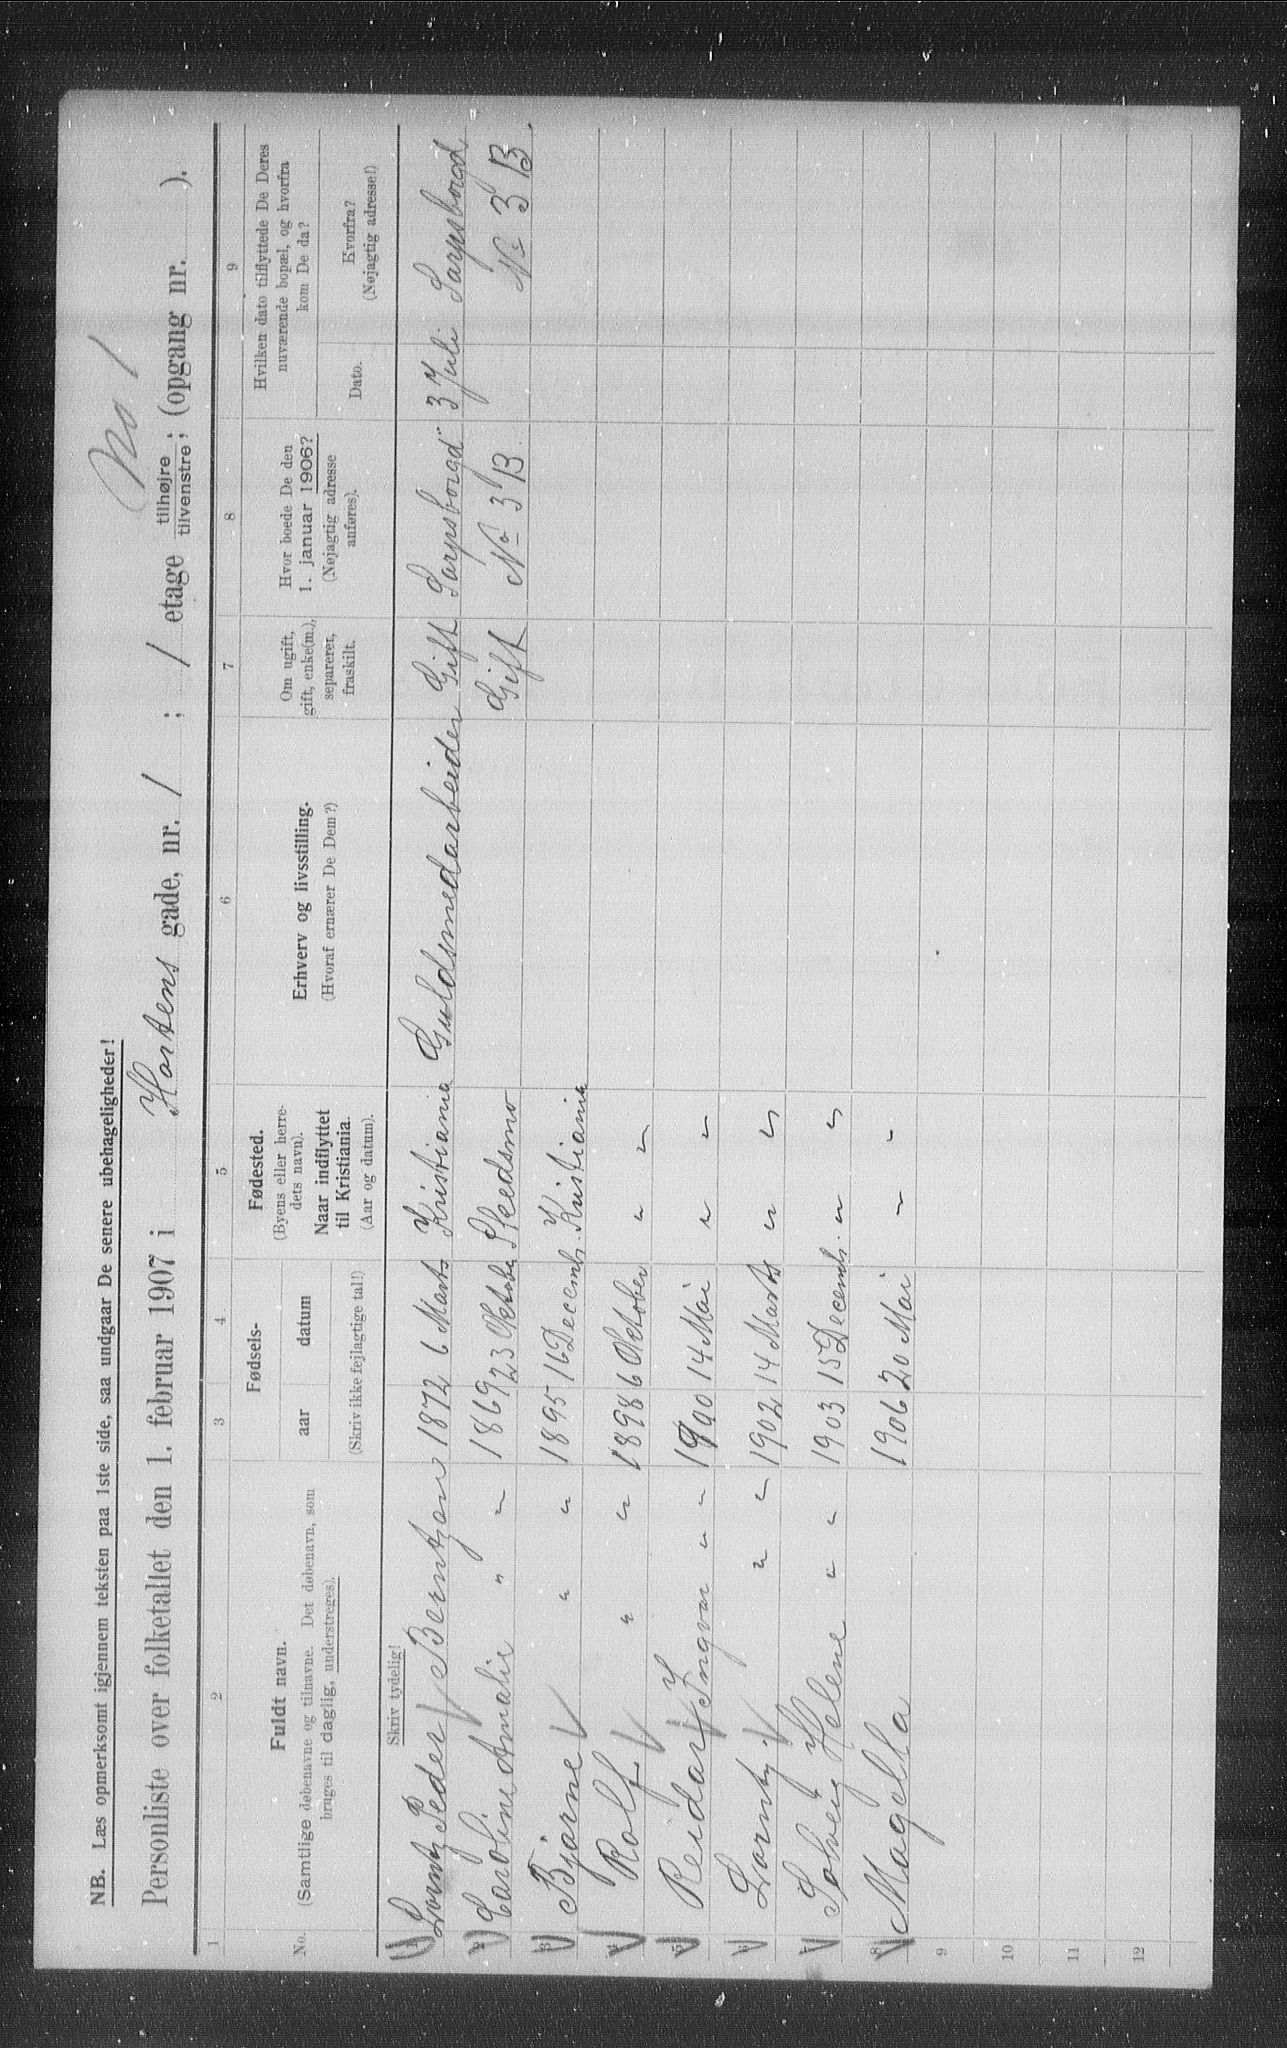 No 1
NB. Læs opmerksomt igjennem teksten paa 1ste side, saa undgaar De senere ubehageligheder!
Personliste over folketallet den 1. februar 1907 i Hortens gade, nr. 1 ; 1 etage tilhøjre tilvenstre ; (opgang nr. ).
1 2 3 4 5 6 7 8 9
No.
Fuldt navn.
(Samtlige døbenavne og tilnavne. Det døbenavn, som
bruges til daglig, understreges).
Fødsels-
aar datum
(Skriv ikke fejlagtige tal!)
Fødested.
(Byens eller herre-
dets navn).
Naar indflyttet
til Kristiania.
(Aar og datum).
Erhverv og livsstilling.
(Hvoraf ernærer De Dem?)
Om ugift,
gift, enke(m.),
separeret,
fraskilt.
Hvor boede De den
1. januar 1906?
(Nøjagtig adresse
anføres).
Hvilken dato tilflyttede De Deres
nuværende bopæl, og hvorfra
kom De da?
Dato.
Hvorfra?
(Nøjagtig adresse!)
Skriv tydelig!
1 Lorentz Peder Berntzen 1872 6 Marts Kristiania Guldsmedarbeider Gift Sarpsborgd 3 Juli Sarpsborgd
2 Caroline Amalie " " 1869 23 Oktober Skedsmo Gift No 3 B. No 3 B.
3 Bjarne " " 1895 16 Decemb. Kristiania
4 Rolf " " 1898 6 Oktober " "
5 Reidar Ingvar " " 1900 14 Mai " "
6 " " 1902 14 Marts " "
7 Solveig Helene " " 1903 15 Decemb. " "
8 Magella 1906 20 Mai " "
9
10
11
12